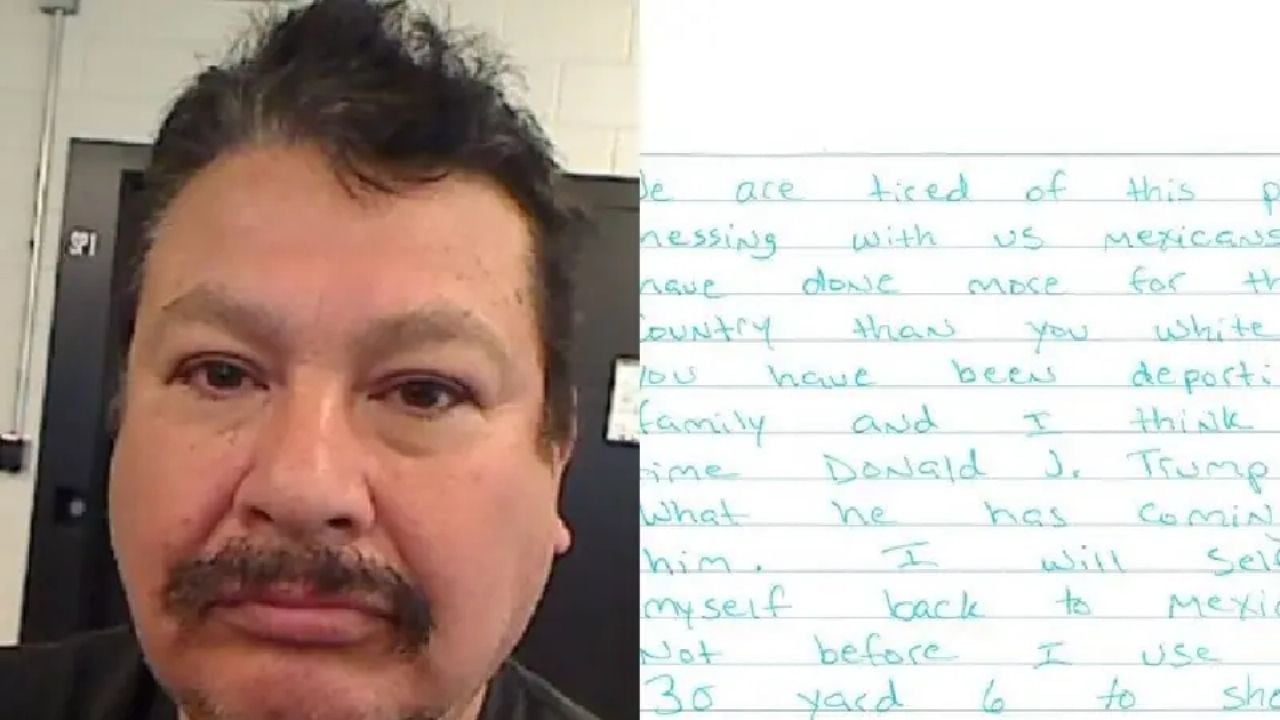 SPI
e are tired of this p
nessing with us mexicans
have done more for th
ountry than you white
ou have been deporti
family and I think
ime Donald J. Trump
what he has comin
him. I will sel
myself back to mexic
Not before I use
30 yard 6 to sho